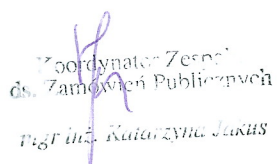 Koordynator Zespołu
ds. Zamówień Publicznych
mgr inż. Katarzyna Jakus